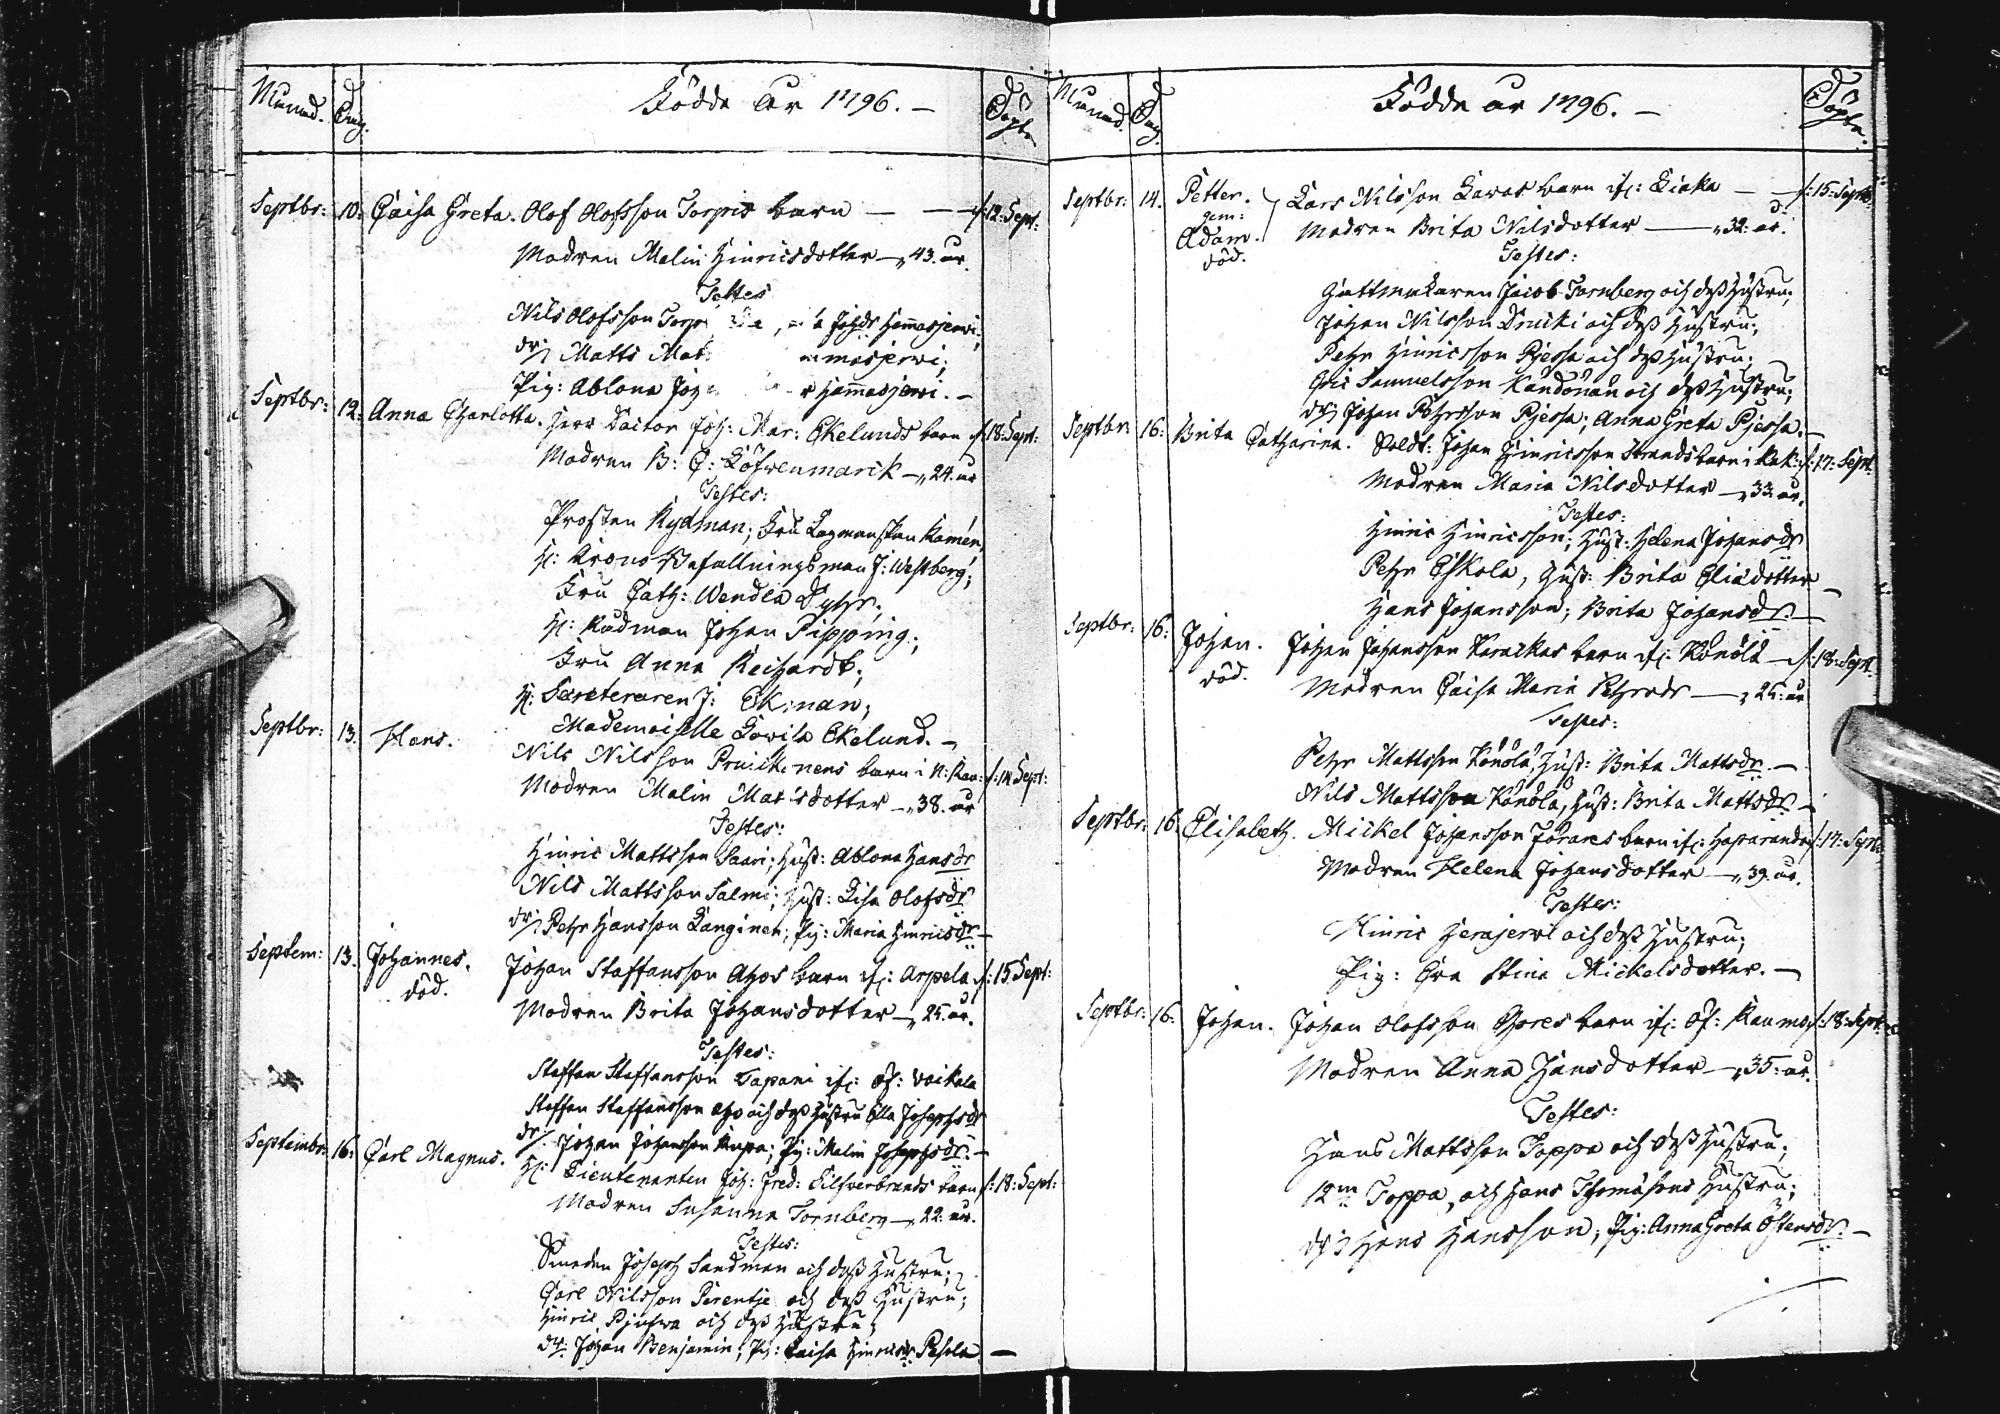 Månad. Dag. Födde år 1796. — Döpte.
Septbr: 10: Caisa Greta. Olof Olofsson Torpis barn — — d: 12: Sept:
Modren Malin Hinricsdotter — 43. år.
Testes
Nils Olofsson Johsdr Hemasjerwi;
dr: Matts
Pig: Ablona Hemasjerwi. —
Septbr: 12: Anna Charlotta. Herr Doctor Joh: Mar: Ekelunds barn d: 18: Sept:
Modren B: C: Löfvenmarck — 24. år
Testes:
Prosten Rydman; Fru Lagmanskan Kamén,
H: Krono Befallningsman J: Westberg;
Fru Cath: Wendla Dyhr;
H: Rådman Johan Pipping;
Fru Anna Reichardt;
H: Secreteraren J: Ekman;
Mademoiselle Lovisa Ekelund. —
Septbr: 13. Hans. Nils Nilsson Pruickonens barn i N: Kau: d: 14 Sept:
Modren Malin Matsdotter — 38. år
Testes:
Hinric Mattsson Saari; Hust: Ablona Hansdr
Nils Mattsson Salmi; Hust: Lisa Olofsdr
dr: Pehr Hansson Langinen; Pig: Maria Hinricsdr —
Septem: 13. Johannes. Johan Staffansson Ahos barn if: Arpela d: 15 Sept:
död. Modren Brita Johansdotter — 25. år.
Testes:
Staffan Staffansson Tapani if: Öf: Voikala
Staffan Staffansson Aho och dess Hustru Ella Josephsdr
dr: Johan Johansson Kurpa; Pig: Malin Josephsdr —
Septembr: 16: Carl Magnus. H: Lieutenanten Joh: Fred: Silfverbrands barn d: 18: Sept:
Modren Susanna Tornberg — 22: år.
Testes:
Smeden Joseph Sandman och dess Hustru;
Carl Nilsson Perentje och dess Hustru;
Hinric och dess Hustru;
dr: Johan Benjamin; Pig: Caisa Hinricsdr Pesola. —
Månad. Dag. Födde år 1796. — Döpte.
Septbr: 14. Petter. Lars Nilsson Lavas barn if: Liaka — d: 15: Septbr
gem: Adam. död. Modren Brita Nilsdotter — 32: år.
Testes:
Hattmakaren Jacob Tornberg och dess Hustru;
Johan Nilsson Drucki och dess Hustru;
Pehr Hinricsson Pjessa och dess Hustru;
Eric Samuelsson Kandonan och dess Hustru;
dr: Johan Pehrsson Pjessa; Anna Greta Pjessa. —
Septbr: 16: Brita Catharina. Soldt: Johan Hinricsson Strands barn i Kak: d: 17: Sept:
Modren Maria Nilsdotter — 33. år.
Testes:
Hinric Hinricsson; Hust: Helena Johansdr
Pehr Eskola, Hust: Brita Eliædotter —
Hans Johansson; Brita Johansdr —
Septbr: 16: Johan. Johan Johansson Karackas barn if: Könölä — d: 18: Sept:
död. Modren Caisa Maria Pehrsdr — 25: år
Testes:
Pehr Mattsson Könölä, Hust: Brita Mattsdr. —
Nils Mattsson Könölä, Hust: Brita Mattsdr —
Septbr: 16: Elisabeth. Mickel Johansson Torares barn if: Haparanda d: 17: Septbr
Modren Helena Johansdotter — 39. år.
Testes:
Hinric Herajerwi och dess Hustru;
Pig: Eva Stina Mickelsdotter. —
Septbr: 16: Johan. Johan Olofsson Ojares barn if: Öf: Raumo d: 18: Sept:
Modren Anna Hansdotter — 35: år.
Testes:
Hans Mattsson Toppa och dess Hustru;
12m Toppa, och Hans Thomæsons Hustru;
dr: Hans Hansson; Pig: Anna Greta Östensdr. —